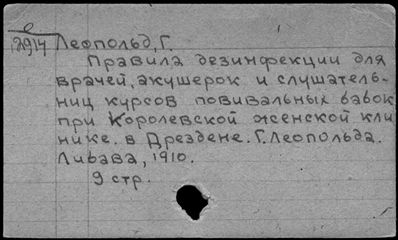 2914 Леопольд, Г.
Правила дезинфекции для
врачей, акушерок и слушатель-
ниц курсов повивальных бабок
при Королевской женской кли
нике. в Дрездене. Г. Леопольда.
Либава, 1910.
9 стр.